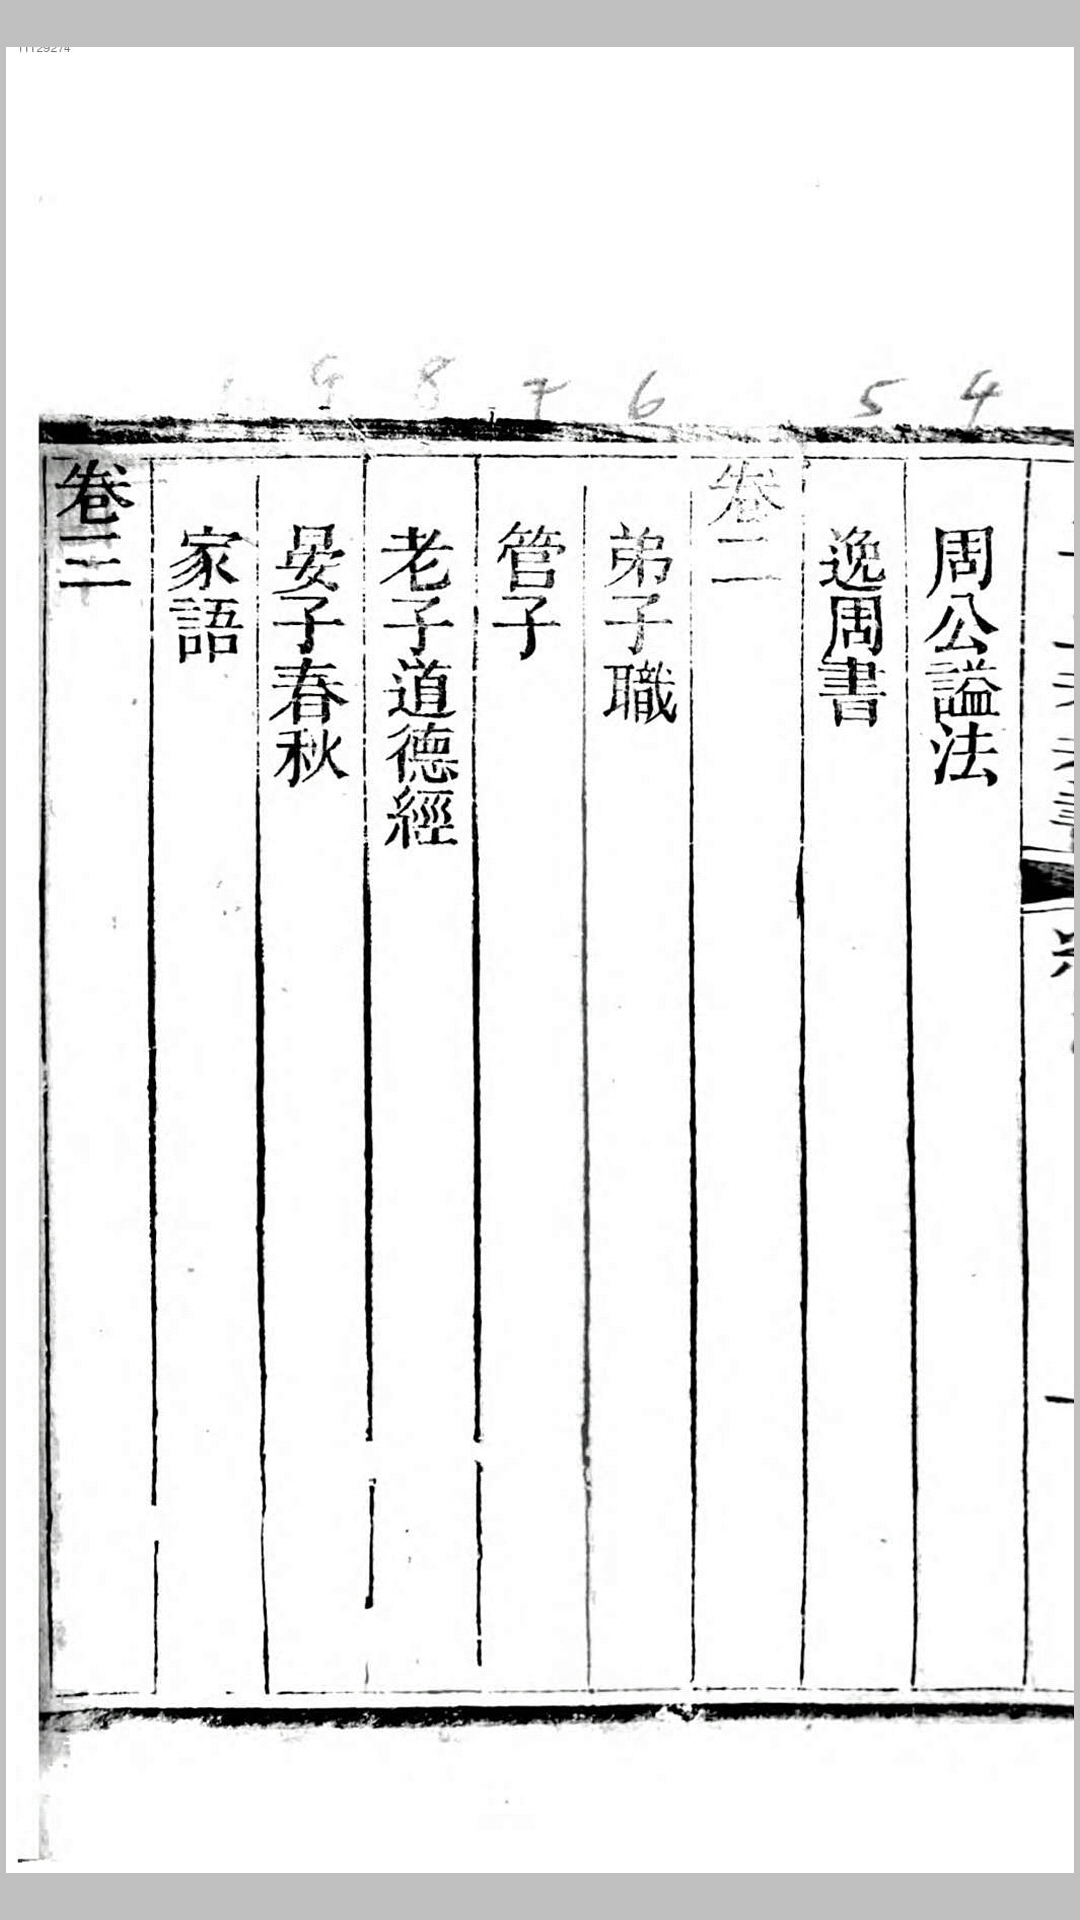 11129274
4
5
6
7
8
9
周公謚法
逸周書
卷二
弟子職
管子
老子道德經
晏子春秋
家語
卷三